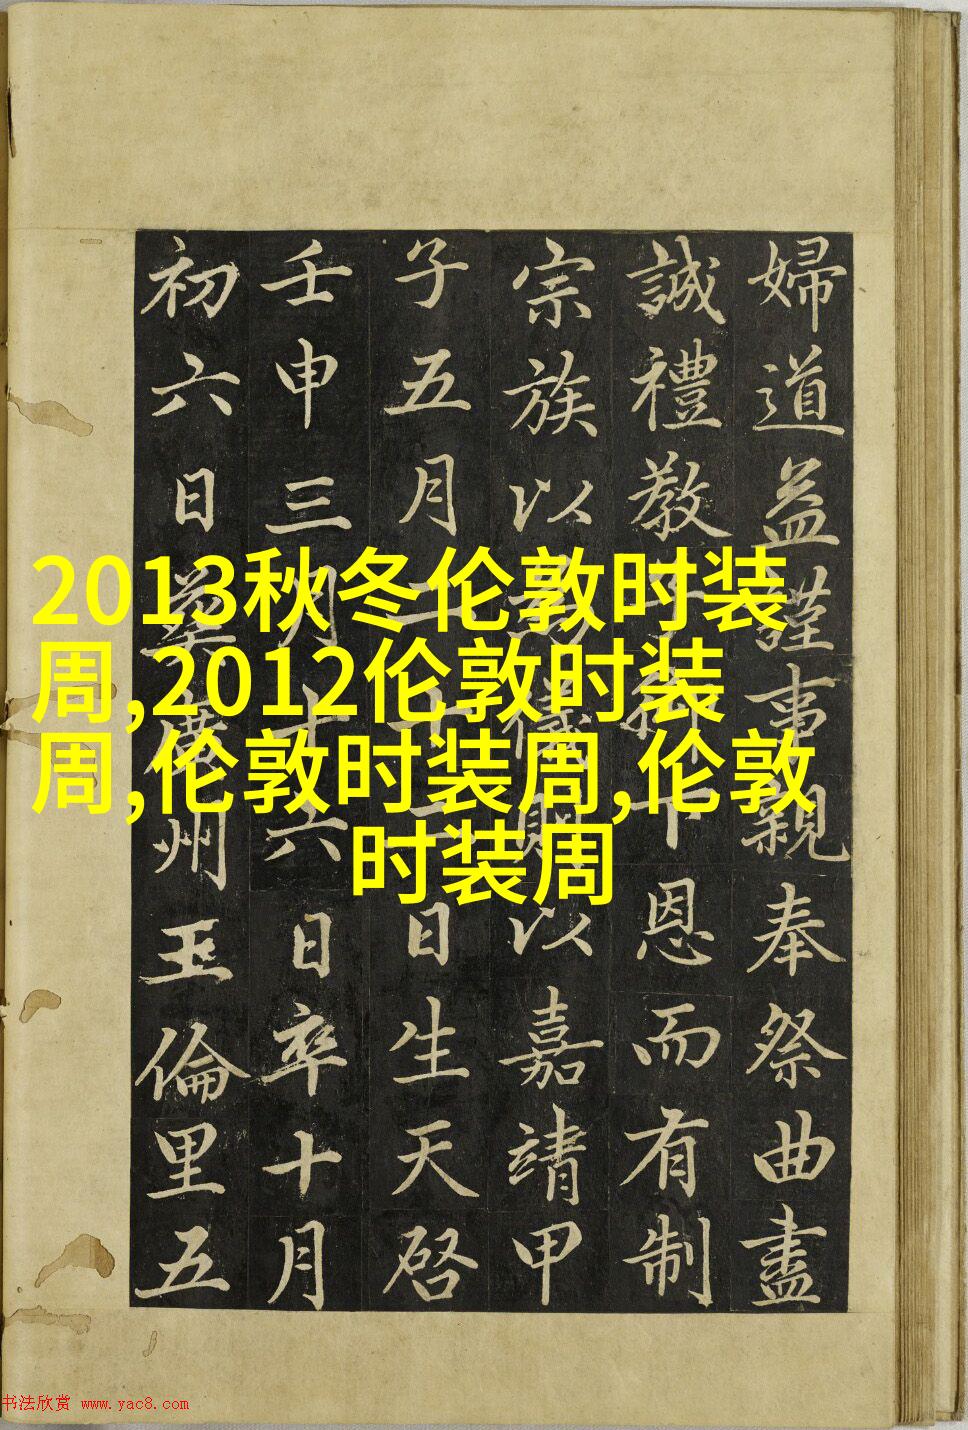 婦道益謹事親奉祭曲盡
誠禮教子御下恩而有制
宗族以為儀則以嘉靖甲
子五月二十日生天啓
壬申三月十六日卒十月
初六日葬州玉倫里五
2013秋冬伦敦时装
周,2012伦敦时装
周,伦敦时装周,伦敦
时装周
书法欣赏 www.yac8.com